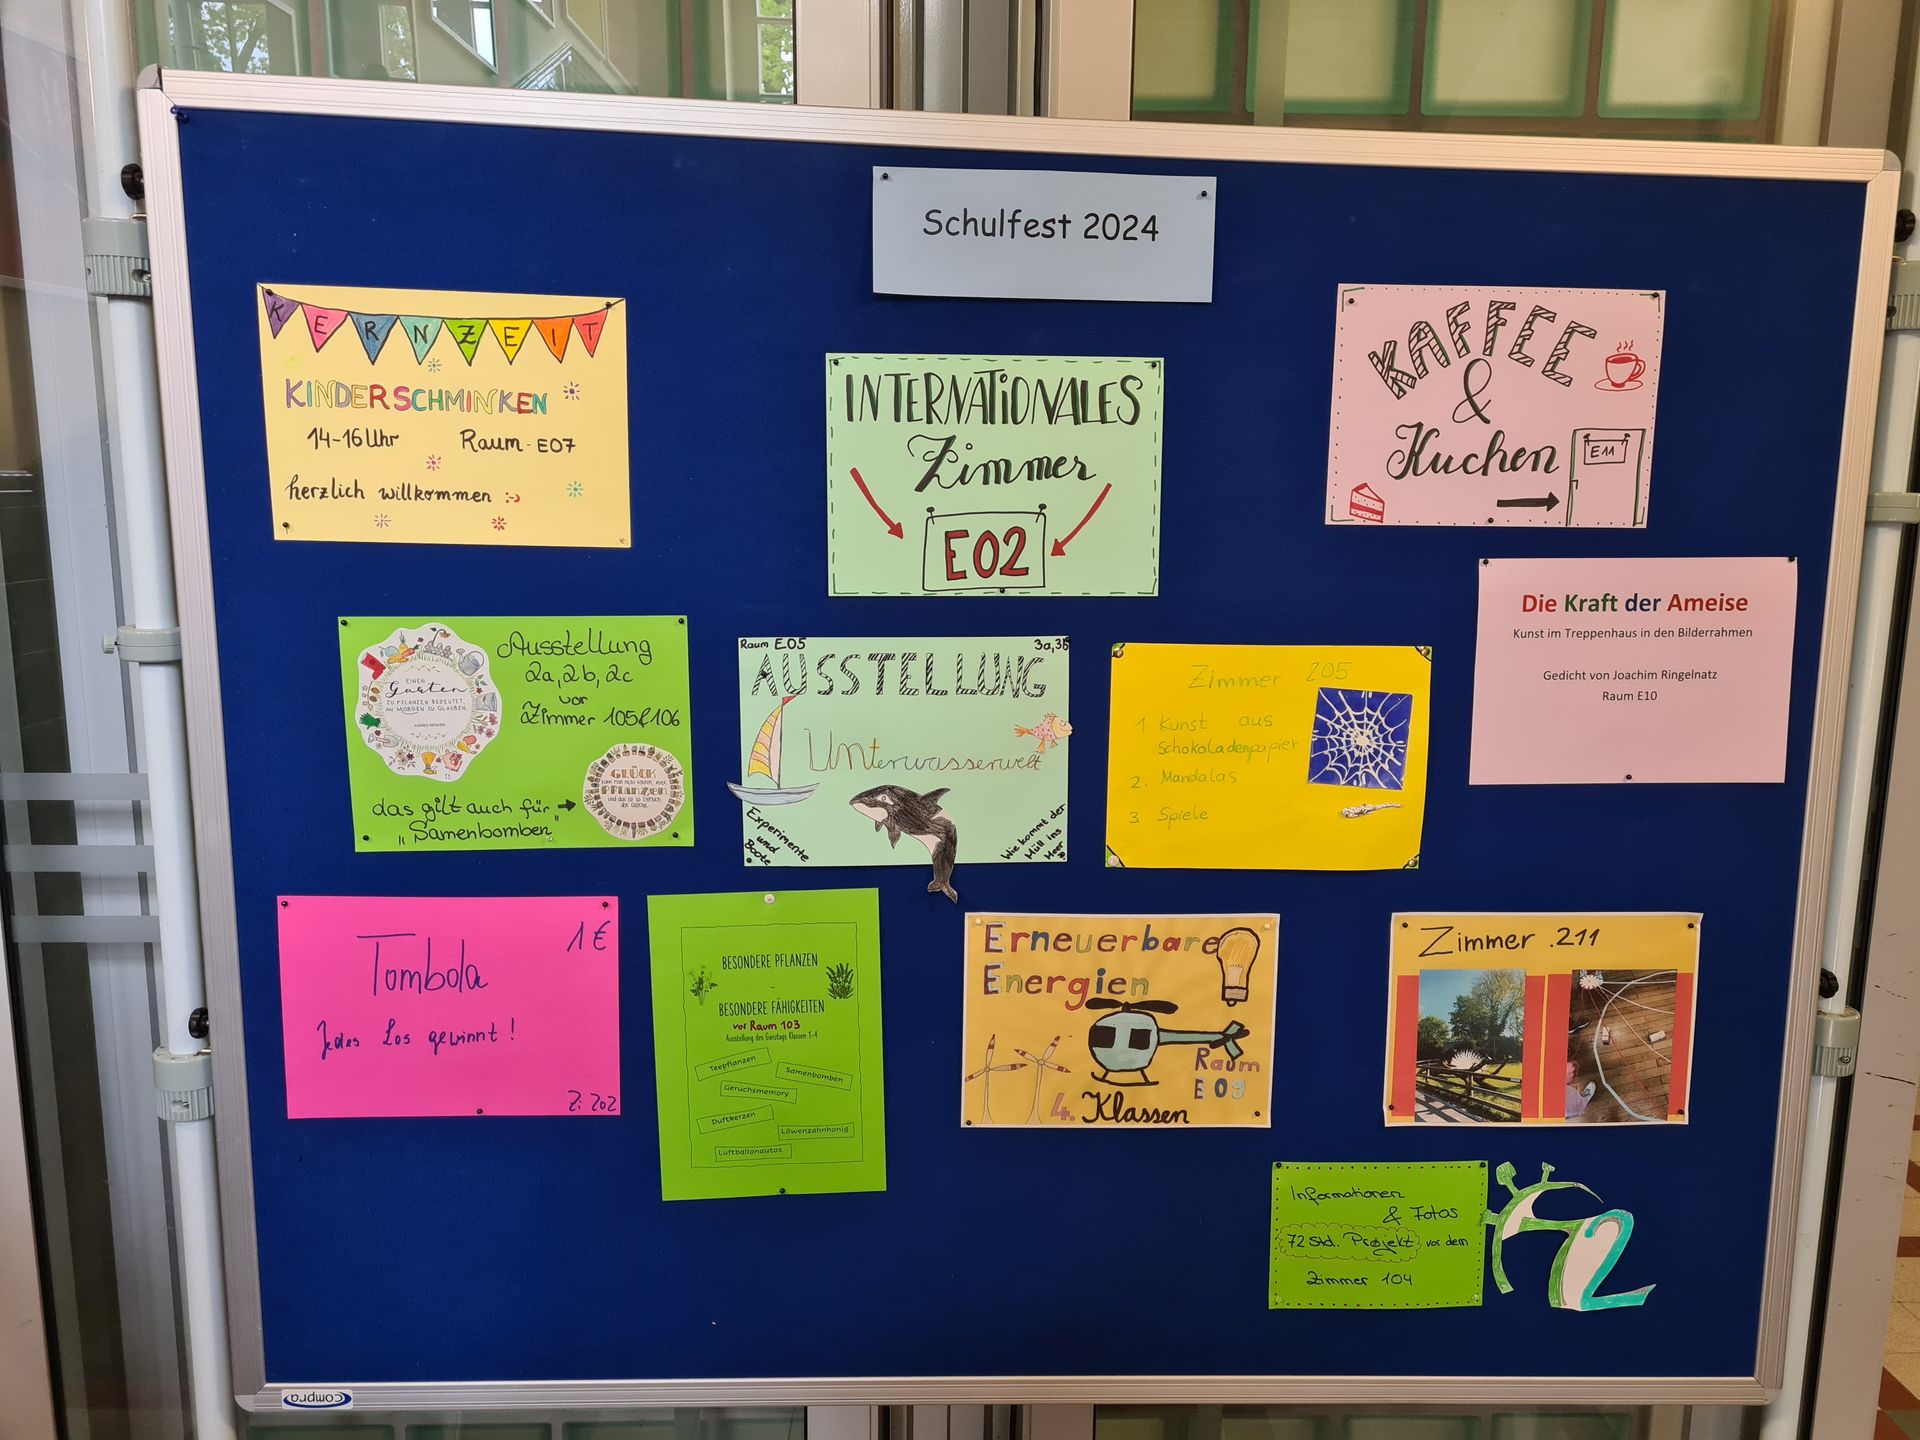 Schulfest 2024
KERNZEIT
KINDERSCHMINKEN
14-16 Uhr Raum - E07
herzlich willkommen :-)
INTERNATIONALES
Zimmer
E02
KAFFEE
&
Kuchen
E11
Die Kraft der Ameise
Kunst im Treppenhaus in den Bilderrahmen
Gedicht von Joachim Ringelnatz
Raum E10
Ausstellung
2a, 2b, 2c
vor
Zimmer 105 & 106
EINEN
Garten
ZU PFLANZEN BEDEUTET,
AN MORGEN ZU GLAUBEN.
AUDREY HEPBURN
GLÜCK
kann man nicht kaufen, aber
PFLANZEN
und das ist so ziemlich
das Gleiche.
das gilt auch für
"Samenbomben"
Raum E05 3a, 3b
AUSSTELLUNG
Unterwasserwelt
Experimente
und
Boote
Wie kommt der
Müll ins
Meer
Zimmer 205
1. Kunst aus
Schokoladenpapier
2. Mandalas
3 Spiele
Tombola 1€
Jedes Los gewinnt!
Zi 202
BESONDERE PFLANZEN
-
BESONDERE FÄHIGKEITEN
vor Raum 103
Ausstellung des Ganztags Klassen 1-4
Teepflanzen
Samenbomben
Geruchsmemory
Duftkerzen
Löwenzahnhonig
Luftballonautos
Erneuerbare
Energien
Raum
E09
4. Klassen
Zimmer .211
Informationen
& Fotos
72 Std. Projekt vor dem
Zimmer 104
72
compra